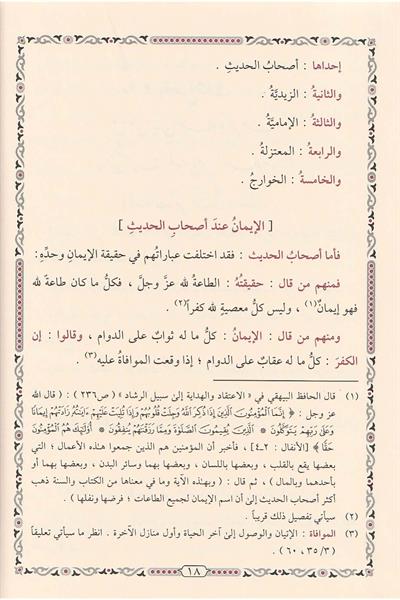 إحداها : أصحابُ الحديثِ .
والثانيةُ : الزيديَّةُ .
والثالثةُ : الإماميَّةُ .
والرابعةُ : المعتزلةُ .
والخامسةُ : الخوارجُ .
[ الإيمانُ عندَ أصحابِ الحديثِ ]
فأما أصحابُ الحديث : فقد اختلفت عباراتُهم في حقيقة الإيمانِ وحدِّهِ:
فمنهم من قال : حقيقتُهُ : الطاعةُ لله عزَّ وجلَّ ، فكلُّ ما كان طاعةً لله
فهو إيمانٌ(١) ، وليس كلُّ معصيةٍ لله كفراً(٢) .
ومنهم من قال : الإيمانُ : كلُّ ما له ثوابٌ على الدوام ، وقالوا : إن
الكفرَ : كلُّ ما له عقابٌ على الدوام ؛ إذا وقعت الموافاةُ عليه(٣) .
(١) قال الحافظ البيهقي في « الاعتقاد والهداية إلى سبيل الرشاد » ( ص٢٣٦ ) : ( قال الله
عز وجل : ﴿ إِنَّمَا ٱلْمُؤْمِنُونَ ٱلَّذِينَ إِذَا ذُكِرَ ٱللَّهُ وَجِلَتْ قُلُوبُهُمْ وَإِذَا تُلِيَتْ عَلَيْهِمْ ءَايَٰتُهُۥ زَادَتْهُمْ إِيمَٰنًا
وَعَلَىٰ رَبِّهِمْ يَتَوَكَّلُونَ * ٱلَّذِينَ يُقِيمُونَ ٱلصَّلَوٰةَ وَمِمَّا رَزَقْنَٰهُمْ يُنفِقُونَ * أُوْلَٰٓئِكَ هُمُ ٱلْمُؤْمِنُونَ
حَقًّا ﴾ [الأنفال : ٢-٤] ، فأخبر أن المؤمنين هم الذين جمعوا هذه الأعمال ؛ التي
بعضها يقع بالقلب ، وبعضها باللسان ، وبعضها بهما وسائر البدن ، وبعضها بهما أو
بأحدهما وبالمال ) ، ثم قال : ( وبهذه الآية وما في معناها من الكتاب والسنة ذهب
أكثر أصحاب الحديث إلى أن اسم الإيمان لجميع الطاعات ؛ فرضها ونفلها ) .
(٢) سيأتي تفصيل ذلك قريباً .
(٣) الموافاة : الإتيان والوصول إلى آخر الحياة وأول منازل الآخرة . انظر ما سيأتي تعليقاً
( ٣/ ٣٥ ، ٦٠ ) .
١٨